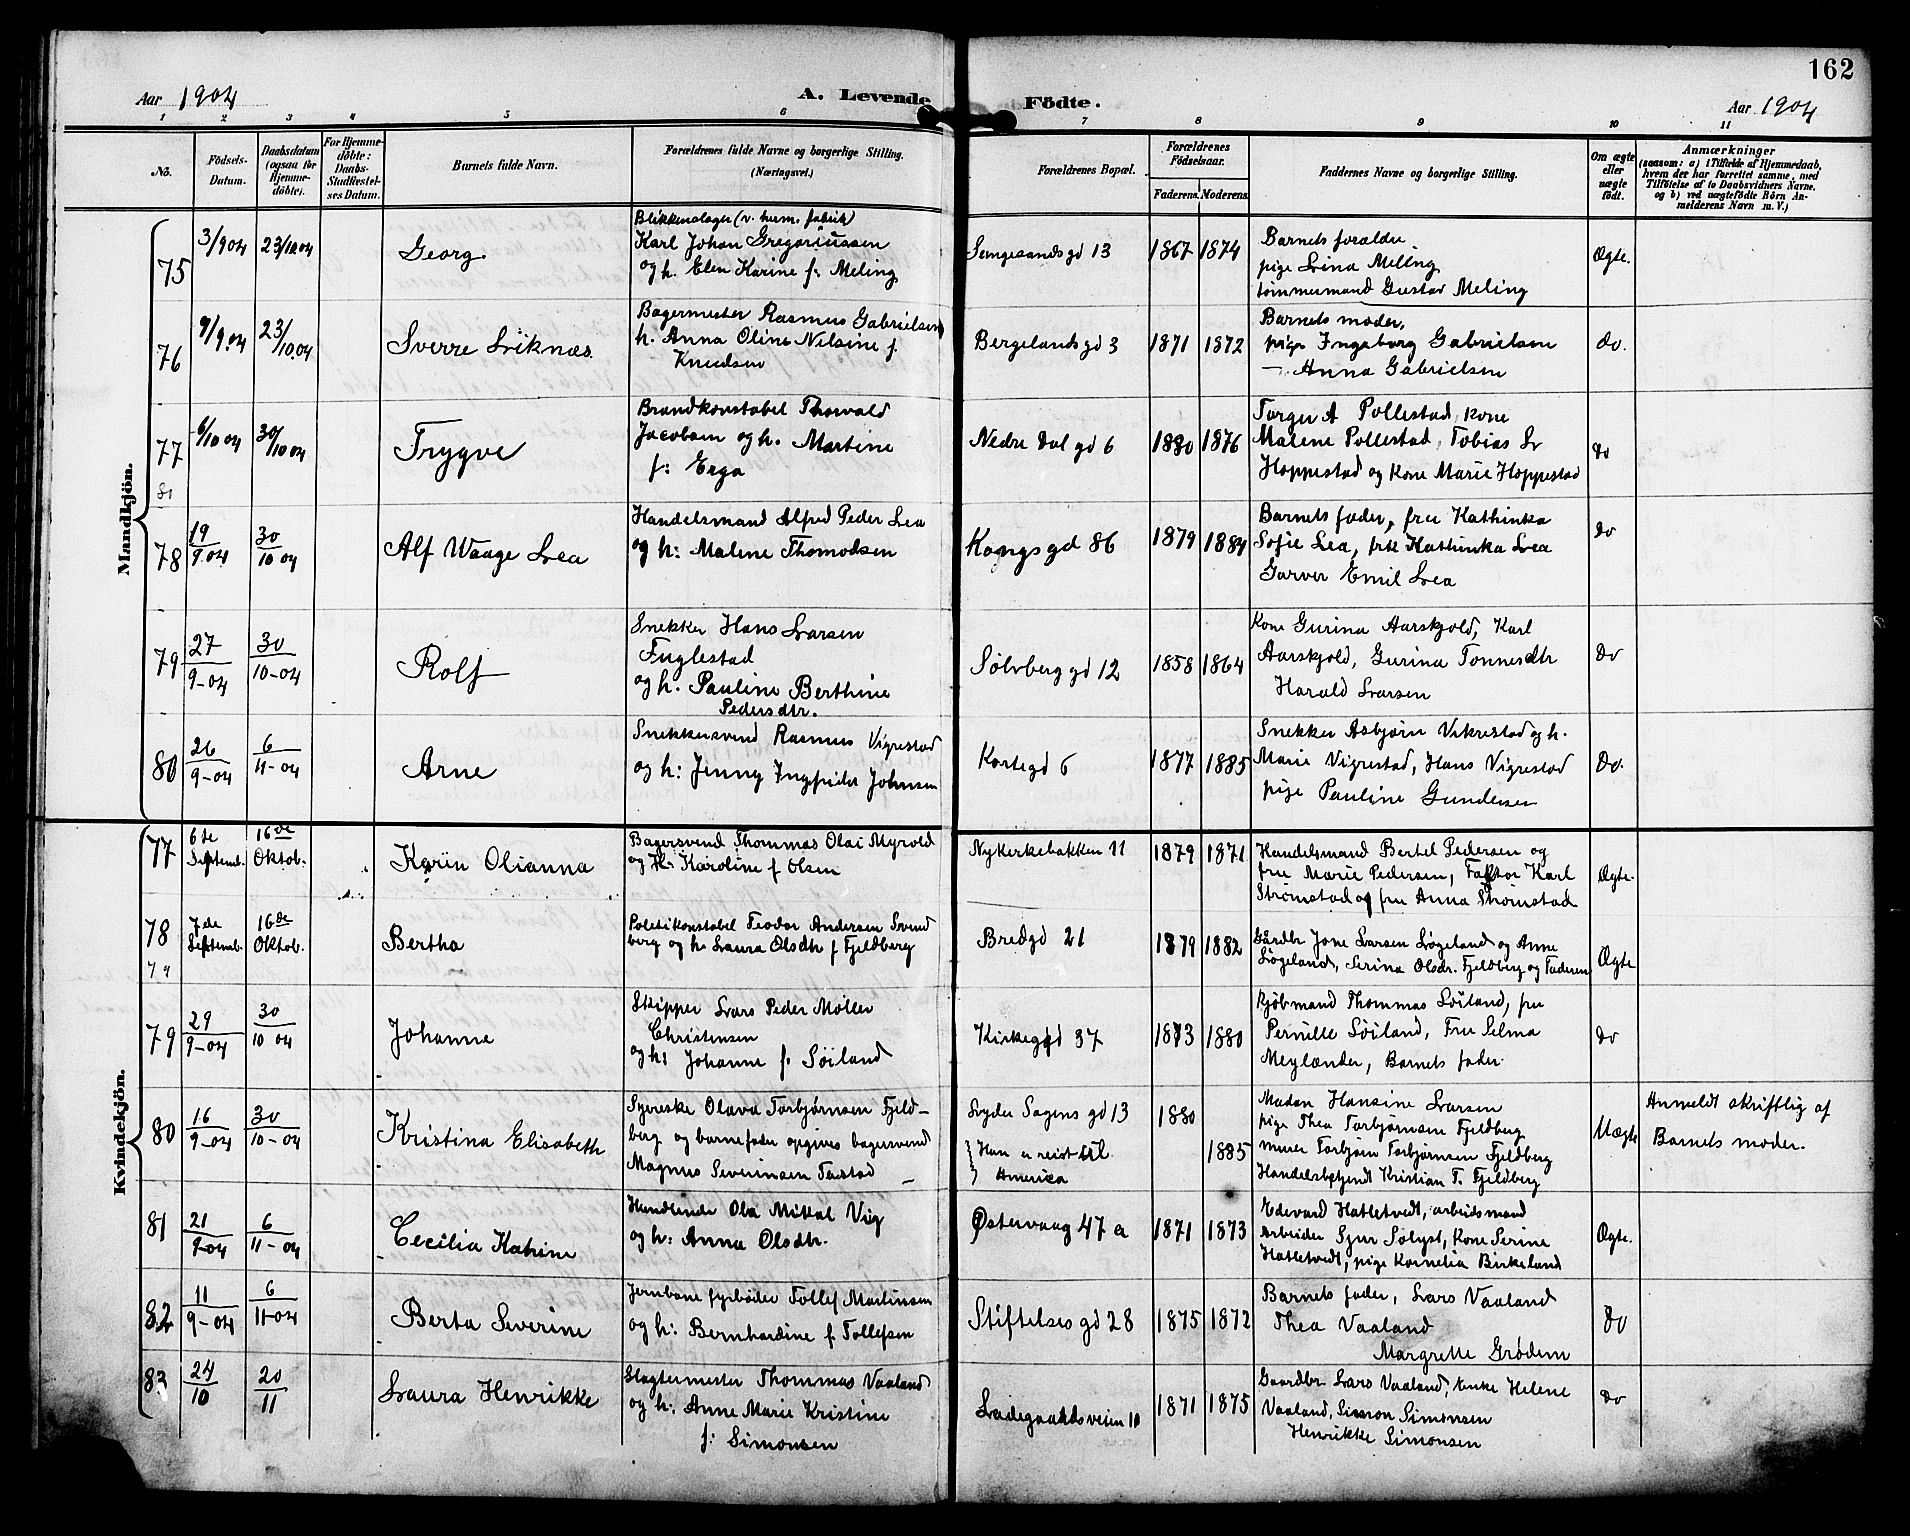 162
Aar 1904
A. Levende Födte.
Aar 1904
1 2 3 4 5 6 7 8 9 10 11
No.
Födsels-
Datum.
Daabsdatum
(ogsaa for
Hjemme-
döbte).
For Hjemme-
döbte:
Daabs-
Stadfæstel-
ses Datum.
Barnets fulde Navn.
Forældrenes fulde Navne og borgerlige Stilling.
(Næringsvei.)
Forældrenes Bopæl.
Forældrenes
Födselsaar.
Faderens. Moderens.
Faddernes Navne og borgerlige Stilling.
Om ægte
eller
uægte
födt.
Anmærkninger
(saasom: a) i Tilfælde af Hjemmedaab,
hvem der har forrettet samme, med
Tilföielse af to Daabsvidners Navne,
og b) ved uægtefödte Börn An-
melderens Navn m. V.)
Mandkjön.
75
3/9 04
23/10 04
Georg.
Blikkenslager (v. herm. fabrik)
Karl Johan Gregoriussen
og h. Elen Karine f. Meling
Sengesandsgd 13
1867 1874
Barnets forældre
pige Lina Meling
tømmermand Gustav Meling
Ægte.
76
9/9.04
23/10.04
Sverre Liknæs.
Bagermester Rasmus Gabrielsen
h. Anna Oline Nilsine f.
Knudsen
Bergelandsgd 3
1871 1872
Barnets moder,
pige Ingeborg Gabrielsen
— Anna Gabrielsen
do.
77
81
6/10 04
30/10 04
Trygve
Brandkonstabel Thorvald
Jacobsen og h. Martine
f: Erga
Nedre Dal gd 6
1880 1876
Torger A Pollestad, kone
Malene Pollestad, Tobias Sr
Hoppestad og kone Marie Hoppestad
do
78
19/9.04
30/10 04
Alf Waage Lea
Handelsmand Alfred Peder Lea
og h: Malene Thomodsen
Kongsgd 86
1879 1884
Barnets fader, fru Kathinka
Sofie Lea, frk Kathinka Lea
Garver Emil Lea
do
79
27/9-04
30/10-04
Rolf
Snekker Hans Larsen
Fuglestad
og h. Pauline Berthine
Pedersdtr.
Sølvberg gd 12
1858 1864
Kone Gurina Aarskjold, Karl
Aarskjold, Gurina Tønnesdtr
Harald Larsen
do
80
26/9-04
6/11-04
Arne
Snekkersvend Rasmus Vigrestad
og h: Jenny Ingfride Johnsen
Kortegd 6
1877 1885
Snekker Asbjørn Vikrestad og h.
Marie Vigrestad, Hans Vigrestad
pige Pauline Gundersen
Do.
Kvindekjön.
77
6te
Septemb.
16de
Oktob.
Karin Olianna
Bagersvend Thommas Olai Myrvold
og H. Karoline f Olsen
Nykerkebakken 11
1879 1871
Handelsmand Bertel Pedersen og
fru Marie Pedersen, Faktor Karl
Strømstad og fru Anna Strømstad
Ægte.
78
79
7de
Septemb.
16de
Oktob.
Bertha
Politikonstabel Teodor Andersen Svend
berg og h. Laura Olsdtr f Fjeldberg
Bredgd 21
1879 1882
Gårdbr Jone Larsen Løgeland og Anne
Løgeland, Serina Olsdr. Fjeldberg og Faderen
Ægte
79
29/9-04
30/10 04
Johanne
Skipper Lars Peder Møller
Christensen
og h: Johanne f. Søiland
Kirkegd 37
1873 1880
Kjøbmand Thommas Søiland, fru
Pernille Søiland, Fru Selma
Meylænder, Barnets fader.
do
80
16/9-04
30/10-04
Kristina Elisabeth
Syerske Olava Torbjørnsen Fjeld-
berg og barnefader opgives bagersvend
Magnus Severinsen Tastad
Lyder Sagens gd 13
Han er reist til
America
1880
1885
Madam Hansine Larsen
pige Thea Torbjørnsen Fjeldberg
murer Torbjørn Torbjørnsen Fjeldberg
Handelsbetjendt Kristian T. Fjeldberg
Uægte
Anmeldt skriftlig af
Barnets moder.
81
21/9-04
6/11-04
Cecilia Katrine
Handlende Ola Mikal Vig
og h: Anna Olsdtr.
Østervaag 47 a
1871 1873
Edevard Hatletvedt, arbeidsmand
Arbeider Sjur Sølyst, Kone Serine
Hatletvedt, pige Kornelia Birkeland
Ægte.
82
11/9-04
6/11-04
Berta Severine
Jernbane fyrbøder Tollef Martinsen
og h: Bernhardine f Tollefsen
Stiftelses gd 28
1875 1872
Barnets fader, Lars Vaaland
Thea Vaaland
Margrette Grødem
do
83
24/10
20/11
Laura Henrikke
Slagtermester Thommas Vaaland
og h: Anne Marie Kristine
f: Simonsen
Ladegaardsveien 10
1871 1875
Gaardbr Lars Vaaland, Enke Helene
Vaaland, Simon Simonsen
Henrikke Simonsen
do